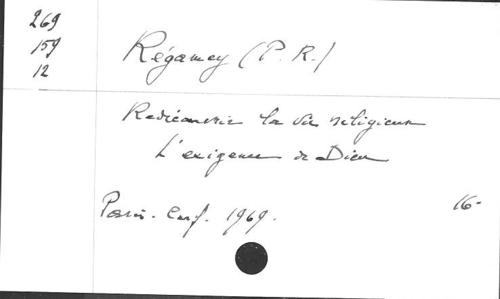 269
159
12
Régamey (P. R.)
Redécouvrir la vie religieuse
L'exigence de Dieu
Paris. Cerf. 1969.
16-